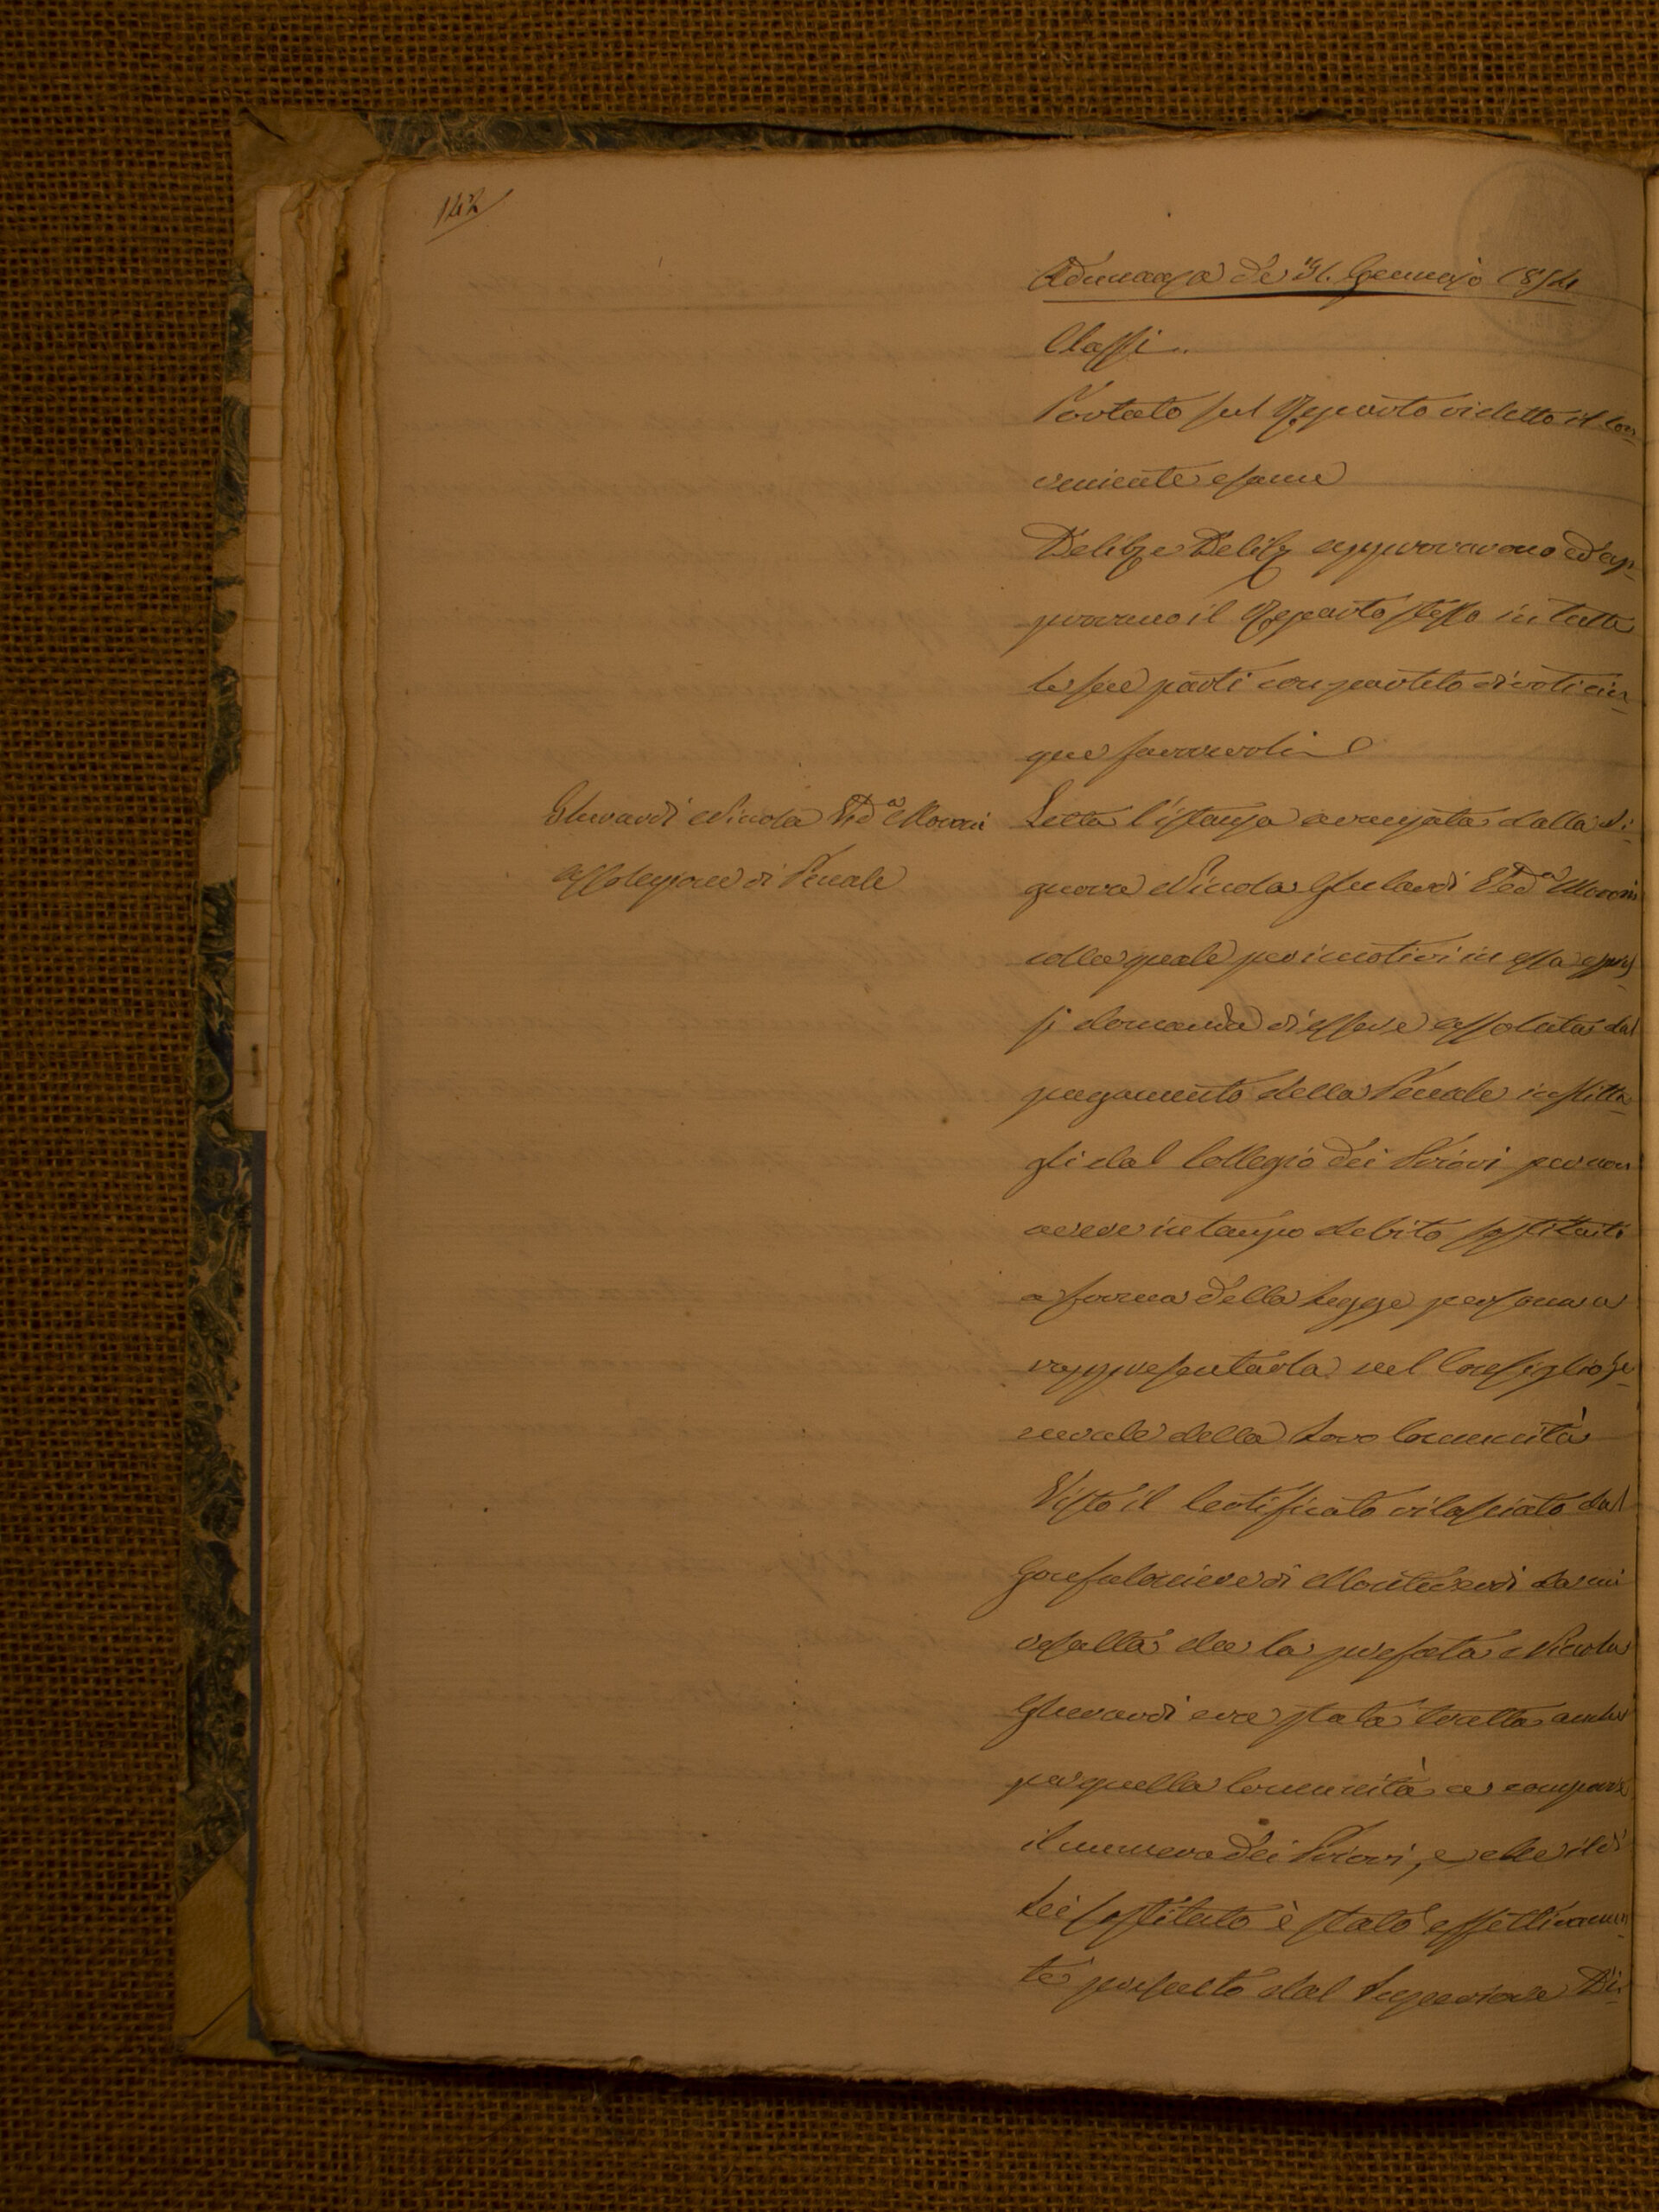 142
Adunanza de 31. Gennajo 1854
Classi..
Portato sul Reparto ridetto il con„
veniente esame
Delibe Delibe approvarono ed ap„
provano il Reparto stesso in tutte
le sue parti con partito di voti cin„
que favorevoli
Gherardi Nicola Ved.a Moroni
assoluzione di Penale
Letta l'istanza avanzata dalla Si„
gnora Nicola Gherardi Ved.a Moroni
colla quale per i motivi in essa espres„
si domanda di essere assoluta dal
pagamento della Penale inflitta„
gli dal Collegio dei Priori per non
avere in tempo debito sostituito
a forma della Legge persona a
rappresentarla nel Consiglio Ge„
nerale della Loro Comunità
Visto il Certificato rilasciato dal
Gonfaloniere di Monteverdi da cui
resulta che la prefata Nicola
Gherardi era stata tratta anche
per quella Comunità a comporre
il numero dei Priori, e che il di
Lei sostituto è stato effettivamen„
te prescelto dal Superiore Di„